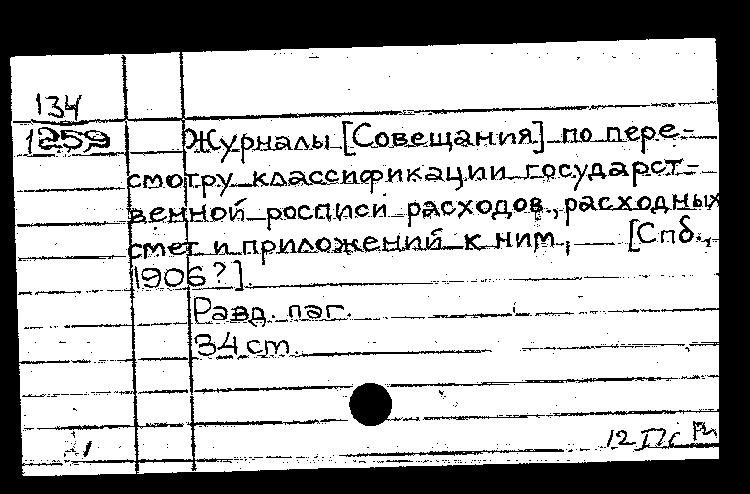 134
1259
Журналы [Совещания] по пере-
смотру классификации государст-
венной росписи расходов, расходных
смет и приложений к ним, [Спб.,
1906?].
Разд. паг.
34 cm.
12